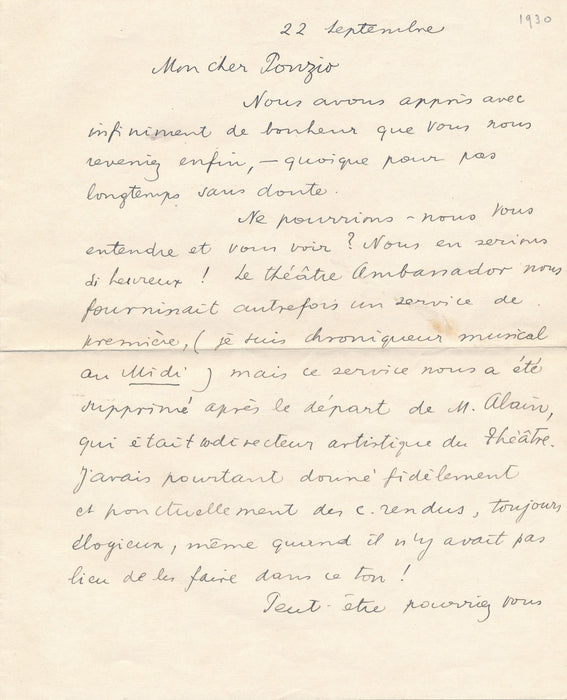 1930
22 Septembre
Mon cher Ponzio
Nous avons appris avec
infiniment de bonheur que vous nous
reveniez enfin, – quoique pour pas
longtemps sans doute.
Ne pourrions-nous vous
entendre et vous voir ? Nous en serions
si heureux ! Le théâtre Ambassador nous
fournissait autrefois un service de
première, ( je suis chroniqueur musical
au Midi ) mais ce service nous a été
supprimé après le départ de M. Alain,
qui était directeur artistique du Théâtre.
J'avais pourtant donné fidèlement
et ponctuellement des c. rendus, toujours
élogieux, même quand il n'y avait pas
lieu de les faire dans ce ton !
Peut-être pourriez vous